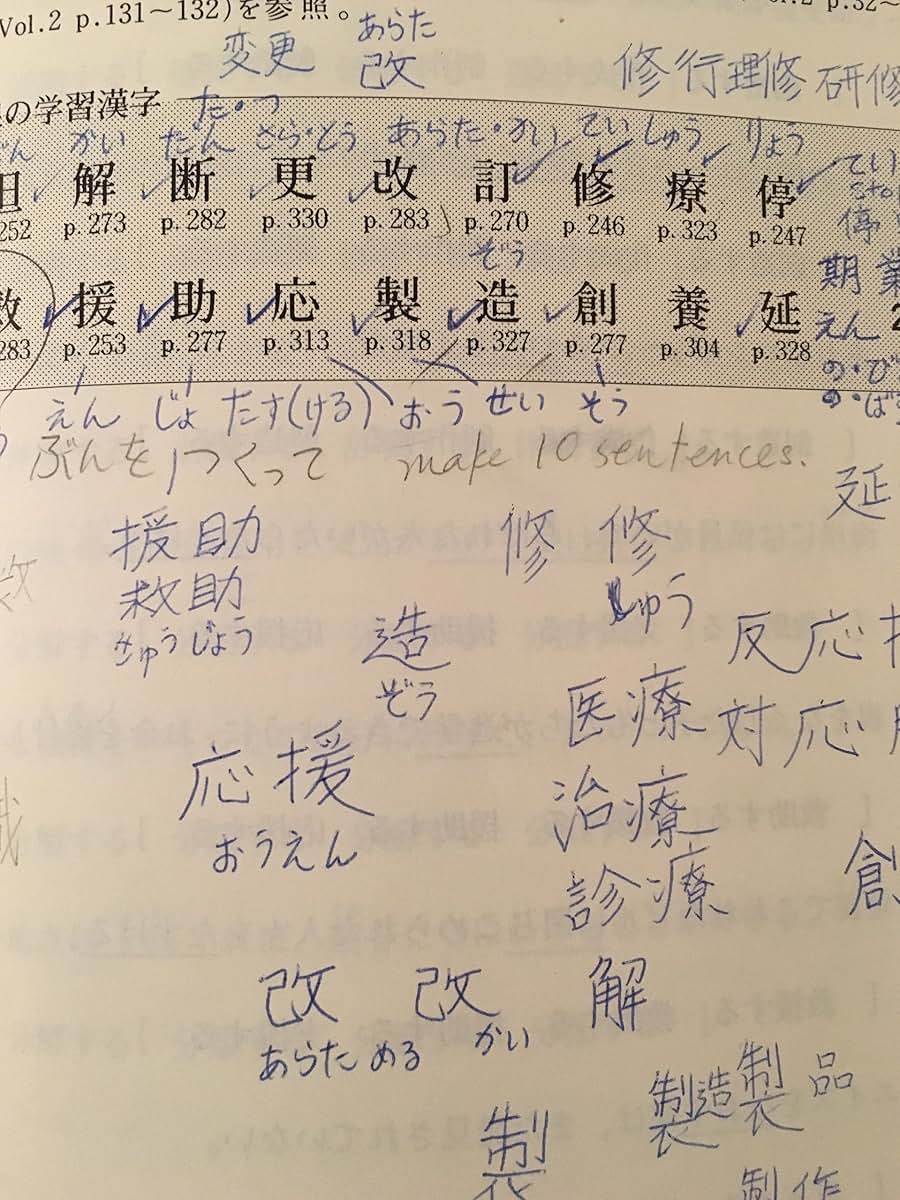 Vol.2 p.131〜132)を参照。
変更 あらた
改 修行 理修 研修
の学習漢字
た・つ
かい だん さら・とう あらた・かい てい しゅう りょう
解 断 更 改 訂 修 療 停
252 p.273 p.282 p.330 p.283 p.270 p.246 p.323 p.247
てい
停
ぞう
救 援 助 応 製 造 創 養 延
283 p.253 p.277 p.313 p.318 p.327 p.277 p.304 p.328
期 業
えん
の・び
の・ば
えん じょ たす(ける) おう せい そう
ぶんを つくって make 10 sentences.
延
援助 修 修
救助 しゅう
きゅうじょう
造 反応
ぞう
医療 対応
応援 治療
おうえん
診療 創
改 改 解
あらためる かい
製造 製品
製 制作